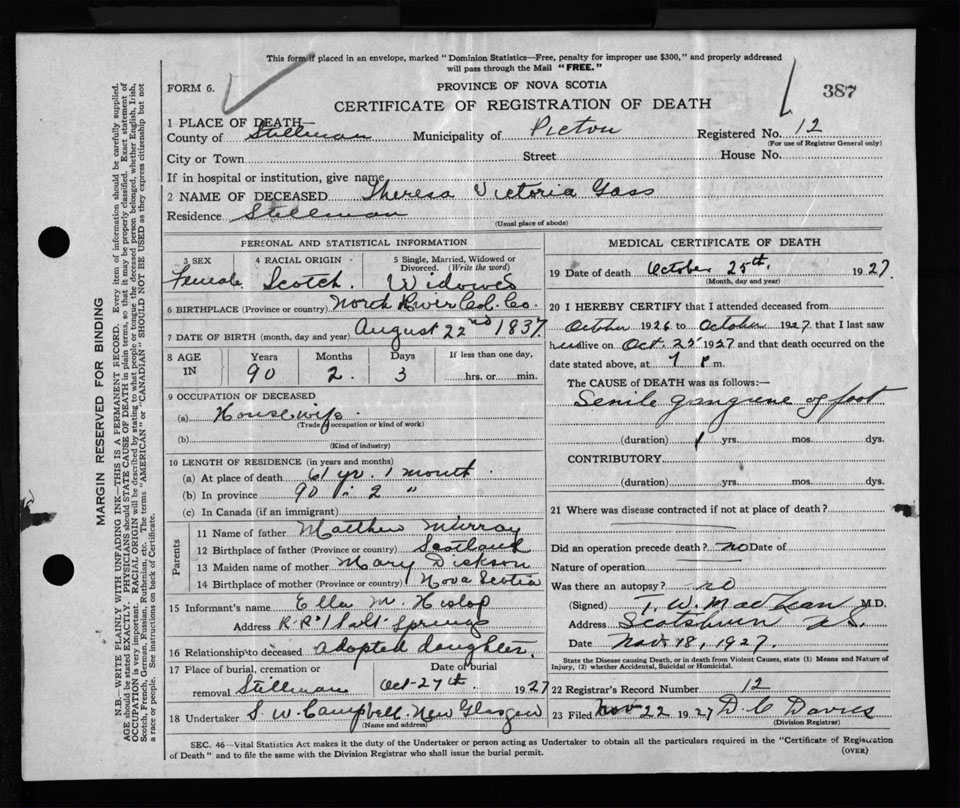 This form if placed in an envelope, marked "Dominion Statistics—Free, penalty for improper use $300," and properly addressed
will pass through the Mail "FREE."
FORM 6.
PROVINCE OF NOVA SCOTIA
387
CERTIFICATE OF REGISTRATION OF DEATH
1 PLACE OF DEATH—
County of Stillman Municipality of Pictou Registered No. 12
(For use of Registrar General only)
City or Town Street House No.
If in hospital or institution, give name
2 NAME OF DECEASED Theresa Victoria Gass
Residence Stillman
(Usual place of abode)
PERSONAL AND STATISTICAL INFORMATION
3 SEX 4 RACIAL ORIGIN 5 Single, Married, Widowed or
Divorced. (Write the word)
Female Scotch. Widowed
6 BIRTHPLACE (Province or country) North River Col. Co.
7 DATE OF BIRTH (month, day and year) August 22nd 1837.
8 AGE IN Years Months Days If less than one day,
90 2. 3 hrs. or min.
9 OCCUPATION OF DECEASED
(a) Housewife
(Trade occupation or kind of work)
(b)
(Kind of industry)
10 LENGTH OF RESIDENCE (in years and months)
(a) At place of death 61 yr. 1 month.
(b) In province 90 " 2 "
(c) In Canada (if an immigrant)
Parents
11 Name of father Matthew Murray
12 Birthplace of father (Province or country) Scotland
13 Maiden name of mother Mary Dickson
14 Birthplace of mother (Province or country) Nova Scotia
15 Informant's name Ella M. Hislop
Address R.R. 1 Salt Springs
16 Relationship to deceased adopted daughter.
17 Place of burial, cremation or Date of burial
removal Stillman Oct-27th. 1927
18 Undertaker S W. Campbell. New Glasgow
(Name and address)
MEDICAL CERTIFICATE OF DEATH
19 Date of death October 25th. 1927.
(Month, day and year)
20 I HEREBY CERTIFY that I attended deceased from
October 1926 to October 1927 that I last saw
her alive on Oct. 25 1927 and that death occurred on the
date stated above, at 7 P m.
The CAUSE of DEATH was as follows:—
Senile gangrene of foot
(duration) 1 yrs. mos. dys.
CONTRIBUTORY
(duration) yrs. mos. dys.
21 Where was disease contracted if not at place of death?
Did an operation precede death? no Date of
Nature of operation
Was there an autopsy? no
(Signed) T. W. MacLean M.D.
Address Scotsburn N.S.
Date Nov. 18, 1927.
State the Disease causing Death, or in death from Violent Causes, state (1) Means and Nature of
Injury, (2) whether Accidental, Suicidal or Homicidal.
22 Registrar's Record Number 12
23 Filed Nov 22 1927 D. C Davies
(Division Registrar)
SEC. 46—Vital Statistics Act makes it the duty of the Undertaker or person acting as Undertaker to obtain all the particulars required in the "Certificate of Registration
of Death" and to file the same with the Division Registrar who shall issue the burial permit.
(OVER)
MARGIN RESERVED FOR BINDING
N.B.—WRITE PLAINLY WITH UNFADING INK—THIS IS A PERMANENT RECORD. Every item of information should be carefully supplied.
AGE should be stated EXACTLY. PHYSICIANS should STATE CAUSE OF DEATH in plain terms, so that it may be properly classified. Exact statement of
OCCUPATION is very important. RACIAL ORIGIN will be described by stating to what people or tongue the deceased person belonged, whether English, Irish,
Scotch, French, German, Russian, Ruthenian, etc. The terms "AMERICAN" or "CANADIAN" SHOULD NOT BE USED as they express citizenship but not
a race or people. See instructions on back of Certificate.